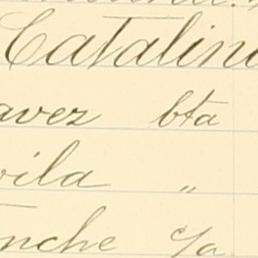 Catalin
avez bta
vila "
nche c/a